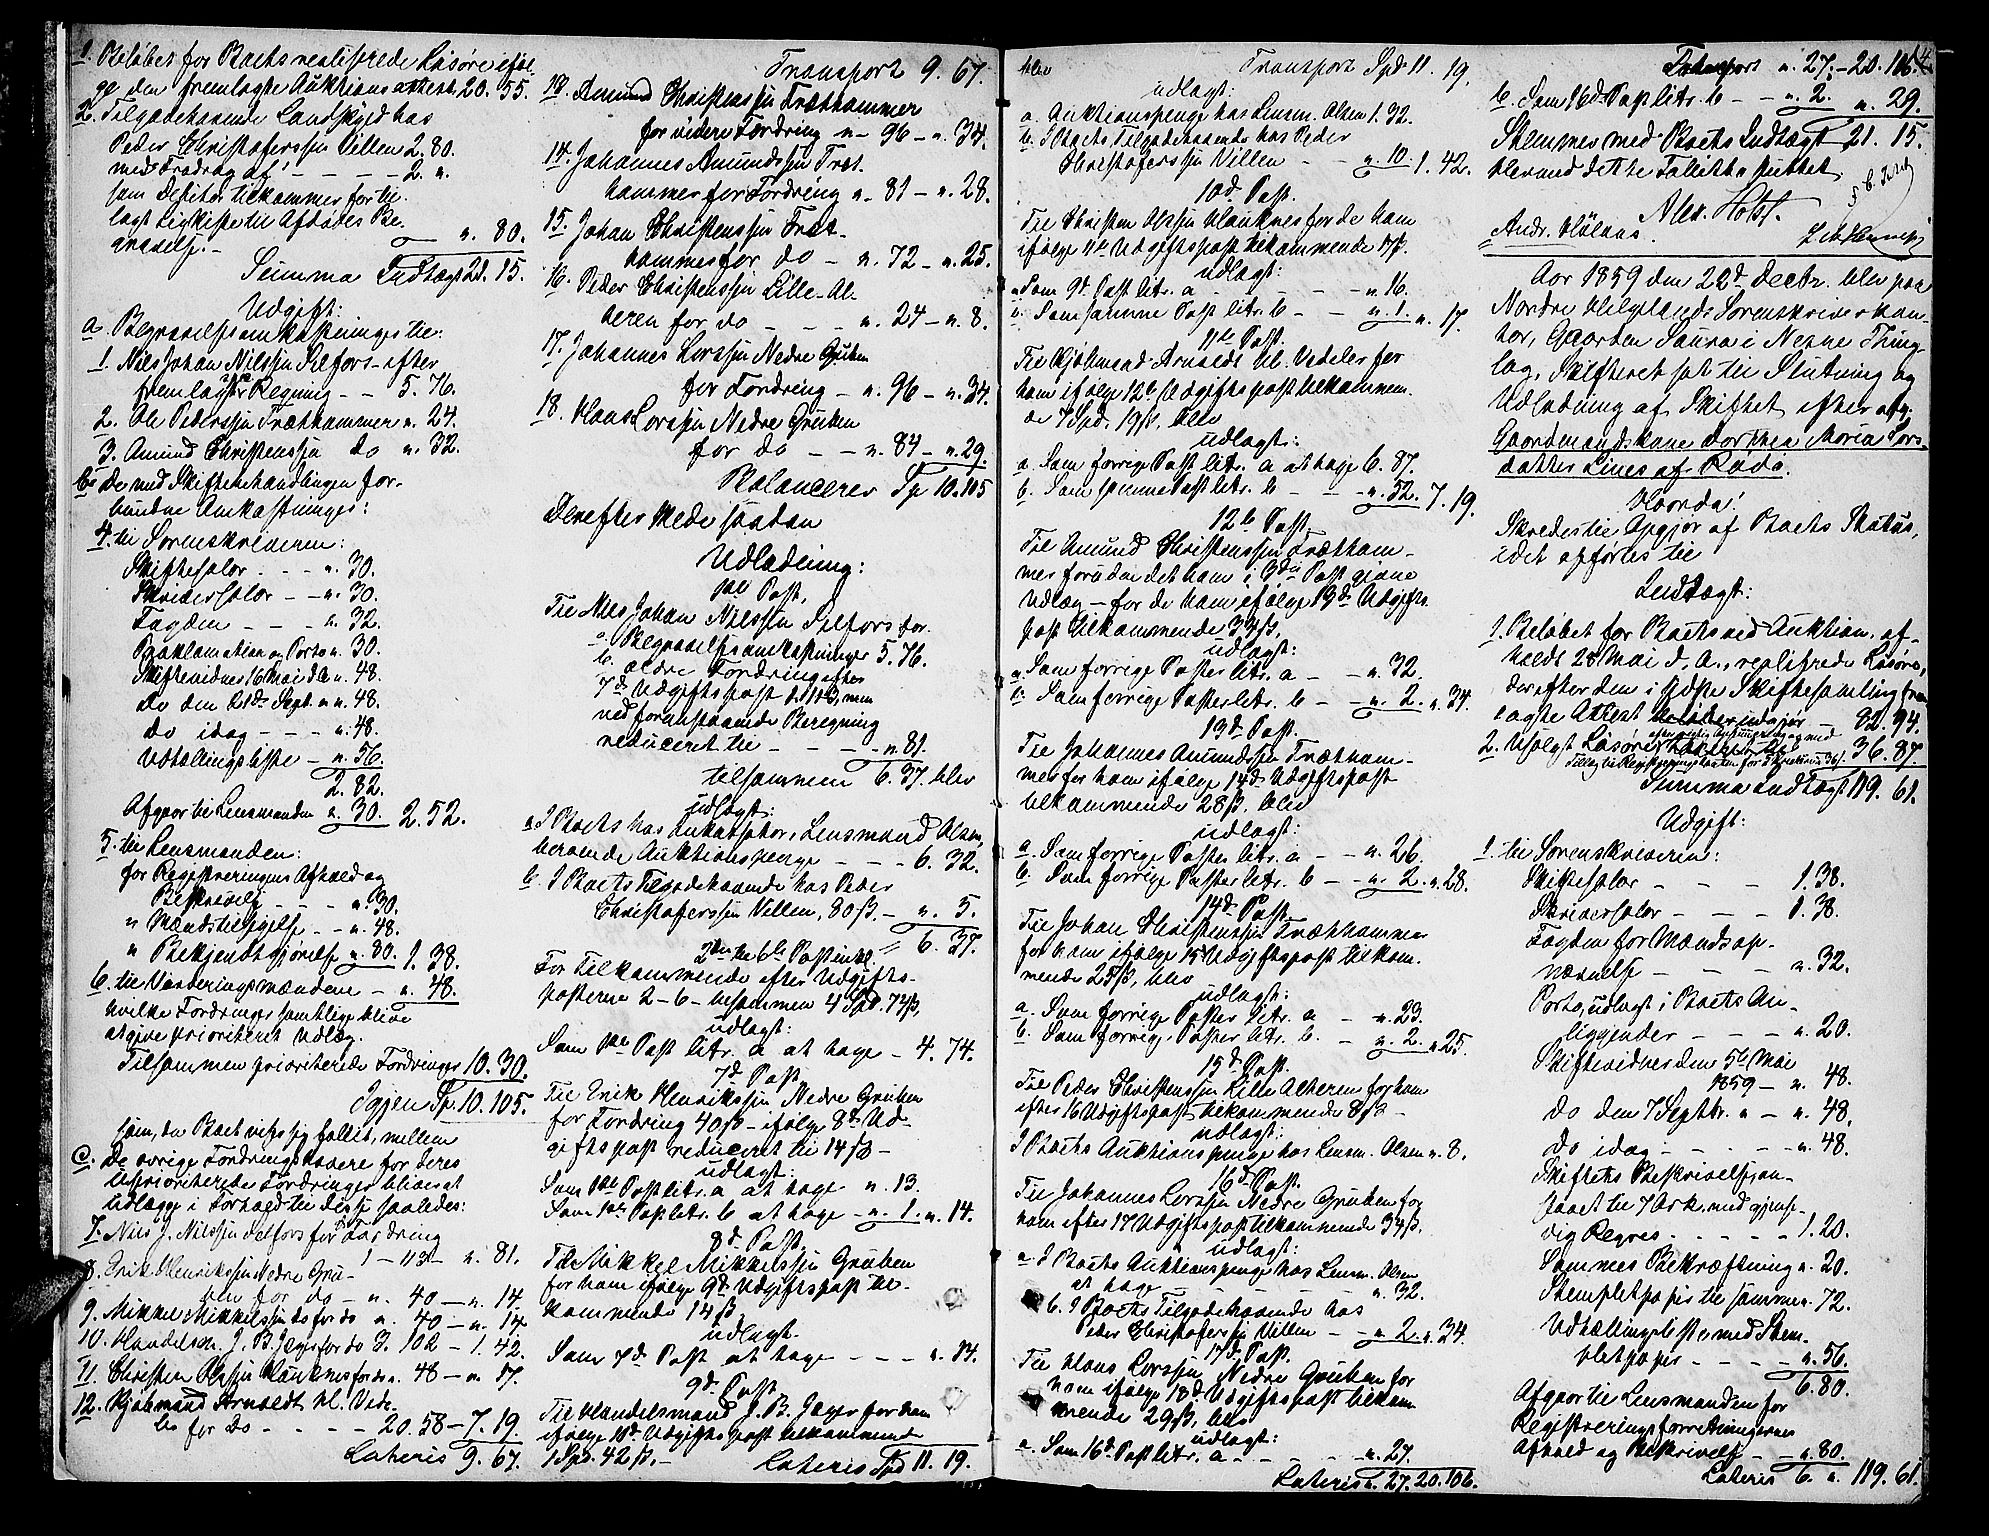 1. Beløbet for Boets realiserede Løsøre iføl-
ge den fremlagte Auktionsattest 20. 55.
2. Tilgodehavende Landskyld hos
Peder Christofersen Villen 2. 80.
med Fradrag af - - - - 2. ".
som Debitor tilkommer for til-
lagt Ligkiste til Afdødes Be-
gravelse. - " . 80.
Summa Indtægt 21. 15.
Udgift:
a. Begravelsesomkostninger til:
1. Nils Johan Nilssen Selfors - efter
fremlagt Regning - - 5. 76.
2. Ole Pederssen Træthammer ". 24.
3. Amund Christenssen do ". 32.
b. De med Skiftebehandlingen for-
bundne Omkostninger:
4. til Sorenskriveren:
Skiftesalær - - - ". 30.
Skriversalær - - ". 30.
Fogden - - - ". 32.
Proklamation og Porto ". 30.
Skiftevidnes 16 Mai d. A. ". 48.
do den 21de Sept. " ". 48.
do idag - - - ". 48.
Udtællingsliste - ". 56.
2. 82.
Afgaar til Lensmanden ". 30. 2. 52.
5. til Lensmanden:
for Registreringens Afhold og
Beskrivelse - - - ". 30.
" Mændstilsigelse - - ". 48.
" Bekjendtgjørelse ". 80. 1. 38.
6. til Vurderingsmændene - ". 48.
hvilke Fordringer samtlige blive
at give prioriteret Udlæg.
Tilsammen prioriterede Fordringer 10. 30.
Igjen Sp. 10. 105.
som, da Boet viser sig fallit, mellem
c. De øvrige Fordringshavere for deres
uprioriterede Fordringer bliver at
udlægge i Forhold til disse saaledes:
7. Nils J. Nilssen Selfors for Fordring
1 - 113 - ". 81.
8. Erik Henrikssen Nedre Gru-
ben for do - ". 40 - ". 14.
9. Mikkel Mikkelssen ds for do ". 40 - ". 14.
10. Handelsm. J. B. Jæger for do 3. 102 - 1. 42.
11. Christen Olssen Hauknes for do ". 48 - ". 17.
12. Hjelmand Arnoldt Kl. Vede-
ler for do - - - - 20. 58 - 7. 19.
Lateris 9. 67.
Transport 9. 67.
13. Amund Christenssen Træthammer
for videre Fordring " - 96 - ". 34.
14. Johannes Amundssen Træt-
hammer for Fordring " - 81 - ". 28.
15. Johan Christenssen Træt-
hammer for do - ". 72 - ". 25.
16. Peder Christenssen Lille-Al-
teren for do - - - ". 24 - ". 8.
17. Johannes Larssen Nedre Gruben
for Fordring - ". 96 - ". 34.
18. Hans Larssen Nedre Gruben
for do - - ". 84 - ". 29.
Balancerer Sp. 10. 105
Derefter skede saadan
Udlodning:
1ste Post.
Til Nils Johan Nilssen Selfors for
a. Begravelsesomkostninger 5. 76.
b. andre Fordring efter
7de Udgiftspost 1. 113, men
ved foranstaaende Beregning
reduceret til - - - - ". 81.
tilsammen 6. 37. blev
udlagt:
a. I Boets hos Inkassator, Lensmand Olsen
beroende Auktionspenge - - - 6. 32.
b. I Boets Tilgodehavende hos Peder
Christoferssen Villen, 80 ß. - ". 5.
" 6. 37.
2den til 6te Post inkl.
For Tilkommende efter Udgifts-
posterne 2 - 6 - tilsammen 4 Spd. 74 ß,
udlagt:
Som 1ste Post litr. a at tage - 4. 74.
7de Post
Til Erik Henrikssen Nedre Gruben
for Fordring 40 ß - ifølge 8de Ud-
giftspost reduceret til 14 ß -
udlagt:
Som 1ste Post litr. a at tage ". 13.
Som 1ste Post litr. b at tage - ". 1. ". 14.
8de Post.
Til Mikkel Mikkelssen Gruben
for ham ifølge 9de Udgiftspost til-
kommende 14 ß
udlagt.
Som 7de Post at tage - - - ". 14.
9de Post
Til Handelsmand J. B. Jæger for ham
ifølge 10de Udgiftspost tilkommende
1 Spd. 42 ß, -
Lateris Spd 11. 19.
blev Transport Spd 11. 19.
udlagt:
a. Auktionspenge hos Lensm. Olsen 1. 32.
b. I Boets Tilgodehavende hos Peder
Christoferssen Villen - - ". 10. 1. 42.
10de Post.
Til Christen Olssen Hauknes for de ham
ifølge 11te Udgiftspost tilkommende 17 ß.
udlagt:
a. Som 9de Post litr. a - - - - ". 16.
b. Som samme Post litr. b - - ". 1. ". 17.
11te Post.
Til Hjelmand Arnoldt Kl. Vedeler for
ham ifølge 12te Udgiftspost tilkommen-
de 7 Spd. 19 ß, blev
udlagt:
a. Som forrige Post litr. a at tage 6. 87.
b. Som samme Post litr. b - - - ". 52. 7. 19.
12te Post.
Til Amund Christenssen Trætham-
mer foruden det ham i 3die Post givne
Udlæg - for de ham ifølge 13de Udgifts-
post tilkommende 34 ß,
udlagt:
a. Som forrige Poster litr. a - - ". 32.
b. Som forrige Poster litr. b - - ". 2. ". 34.
13de Post.
Til Johannes Amundssen Trætham-
mer for ham ifølge 14de Udgiftspost
tilkommende 28 ß, blev
udlagt:
a. Som forrige Poster litr. a - - ". 26.
b. Som forrige Poster litr. b - - ". 2. ". 28.
14de Post.
Til Johan Christenssen Træthammer
for ham ifølge 15de Udgiftspost tilkom-
mende 25 ß, blev
udlagt:
a. Som forrige Poster litr. a - ". 23.
b. Som forrige Poster litr. b. - ". 2. ". 25.
15de Post.
Til Peder Christenssen Lille Alteren for ham
efter 16 Udgiftspost tilkommende 8 ß -
udlagt:
I Boets Auktionspenge hos Lensm. Olsen ". 8.
16de Post.
Til Johannes Larssen Nedre Gruben for
ham efter 17 Udgiftspost tilkommende 34 ß.
udlagt:
a. I Boets Auktionspenge hos Lensm. Olsen
at tage ". 32.
b. I Boets Tilgodehavende hos
Peder Christoferssen Villen - - ". 2. ". 34.
17de Post.
Til Hans Larssen Nedre Gruben for
ham ifølge 18de Udgiftspost tilkom-
mende 29 ß, blev
udlagt:
a. Som 16de Post litr. a - - - - ". 27.
Lateris ". 27. 20. 106.
Transport ". 27. - 20. 106.
b. Som 16de Post litr. b - - ". 2. ". 29.
Stemmer med Boets Indtægt 21. 15.
Hermed dette Fallitbo sluttet.
Alex. Holst.
Andr. Hølaas.
Aar 1859 den 22de Decbr. blev paa
Nordre Helgelands Sorenskriverkon-
tor, Gaarden Saura i Nesne Thing-
lag, Skifteret sat til Slutning og
Udlodning af Skiftet efter afg.
Gaardmandskone Dorthea Maria Lars-
datter Lines af Rødø.
Hvorda!
Skredes til Opgjør af Boets Status,
idet opføres til
Indtægt:
1. Beløbet for Boets ved Auktion, af-
holdt 28 Mai d. A., realiserede Løsøre,
der efter den i sidste Skiftesamling frem-
lagte Attest udgjør - 82. 94.
2. Usolgt Løsøre 36. 87.
Summa Indtægt 119. 61.
Udgift:
1. til Sorenskriveren:
Skiftesalær - - - 1. 38.
Skriversalær - - - 1. 38.
Fogden for Mændsop-
nævnelse - - - ". 32.
Porto, udlagt i Boets An-
liggender - - - ". 20.
Skiftevidnes den 5te Mai
1859 - ". 48.
Do den 7 Septbr. " - ". 48.
Do idag - - - - ". 48.
Skiftets Beskrivelse, an-
slaaet til 7 Ark, med gjense-
dig Regres - - - - - 1. 20.
Sammes Bekræftning ". 20.
Stemplet papir til samme ". 72.
Udtællingslister med Stem-
pletpapir - - - - ". 56.
6. 80.
Afgaar til Lensmanden for
Registreringsforretningernes
Afhold og Beskrivelse - - ". 80.
Lateris 6. ". 119. 61.